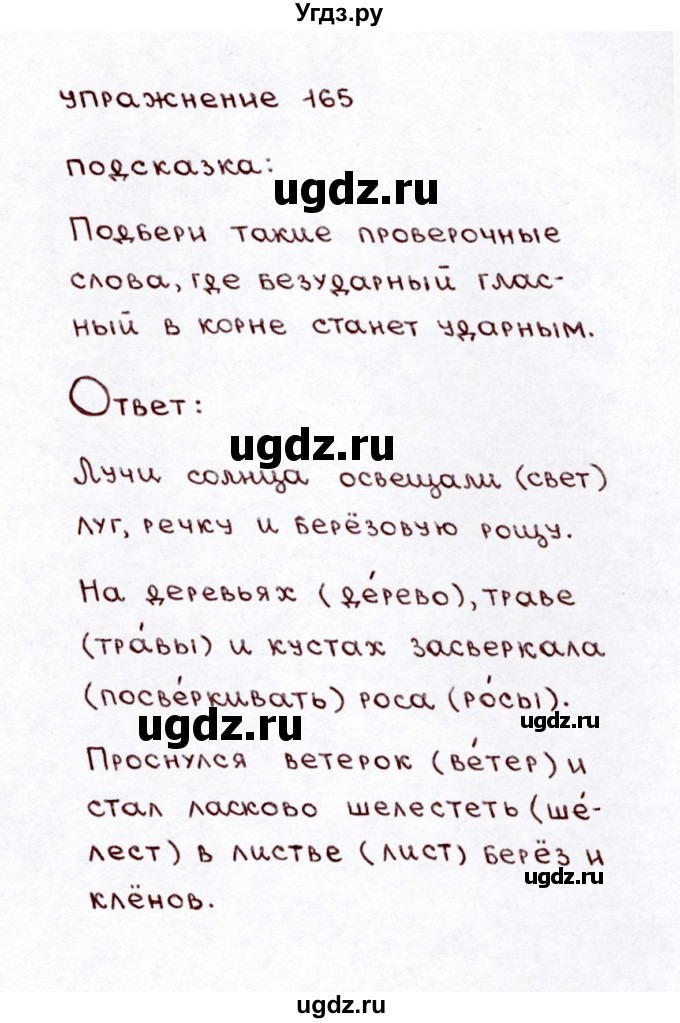 Угдз.ру
упражнение 165
подсказка:
ugdz.ru
Подбери такие проверочные
слова, где безударный глас-
ный в корне станет ударным.
Ответ:
ugdz.ru
Лучи солнца освещали (свет)
луг, речку и берёзовую рощу.
На деревьях (де́рево), траве
(тра́вы) и кустах засверкала
(посве́ркивать) роса (ро́сы).
ugdz.ru
ugdz.ru
Проснулся ветерок (ве́тер) и
стал ласково шелестеть (ше́-
лест) в листве (лист) берёз и
ugdz.ru
клёнов.
ugdz.ru